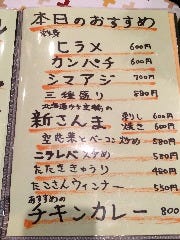 本日のおすすめ
刺身
ヒラメ 600円
カンパチ 600円
シマアジ 700円
三種盛り 880円
北海道
新さんま 刺し 600円
焼き 600円
空芯菜とベーコン炒め 580円
ニラレバ炒め 580円
たたききゅうり 480円
たこさんウィンナー 550円
おすすめの
チキンカレー 800